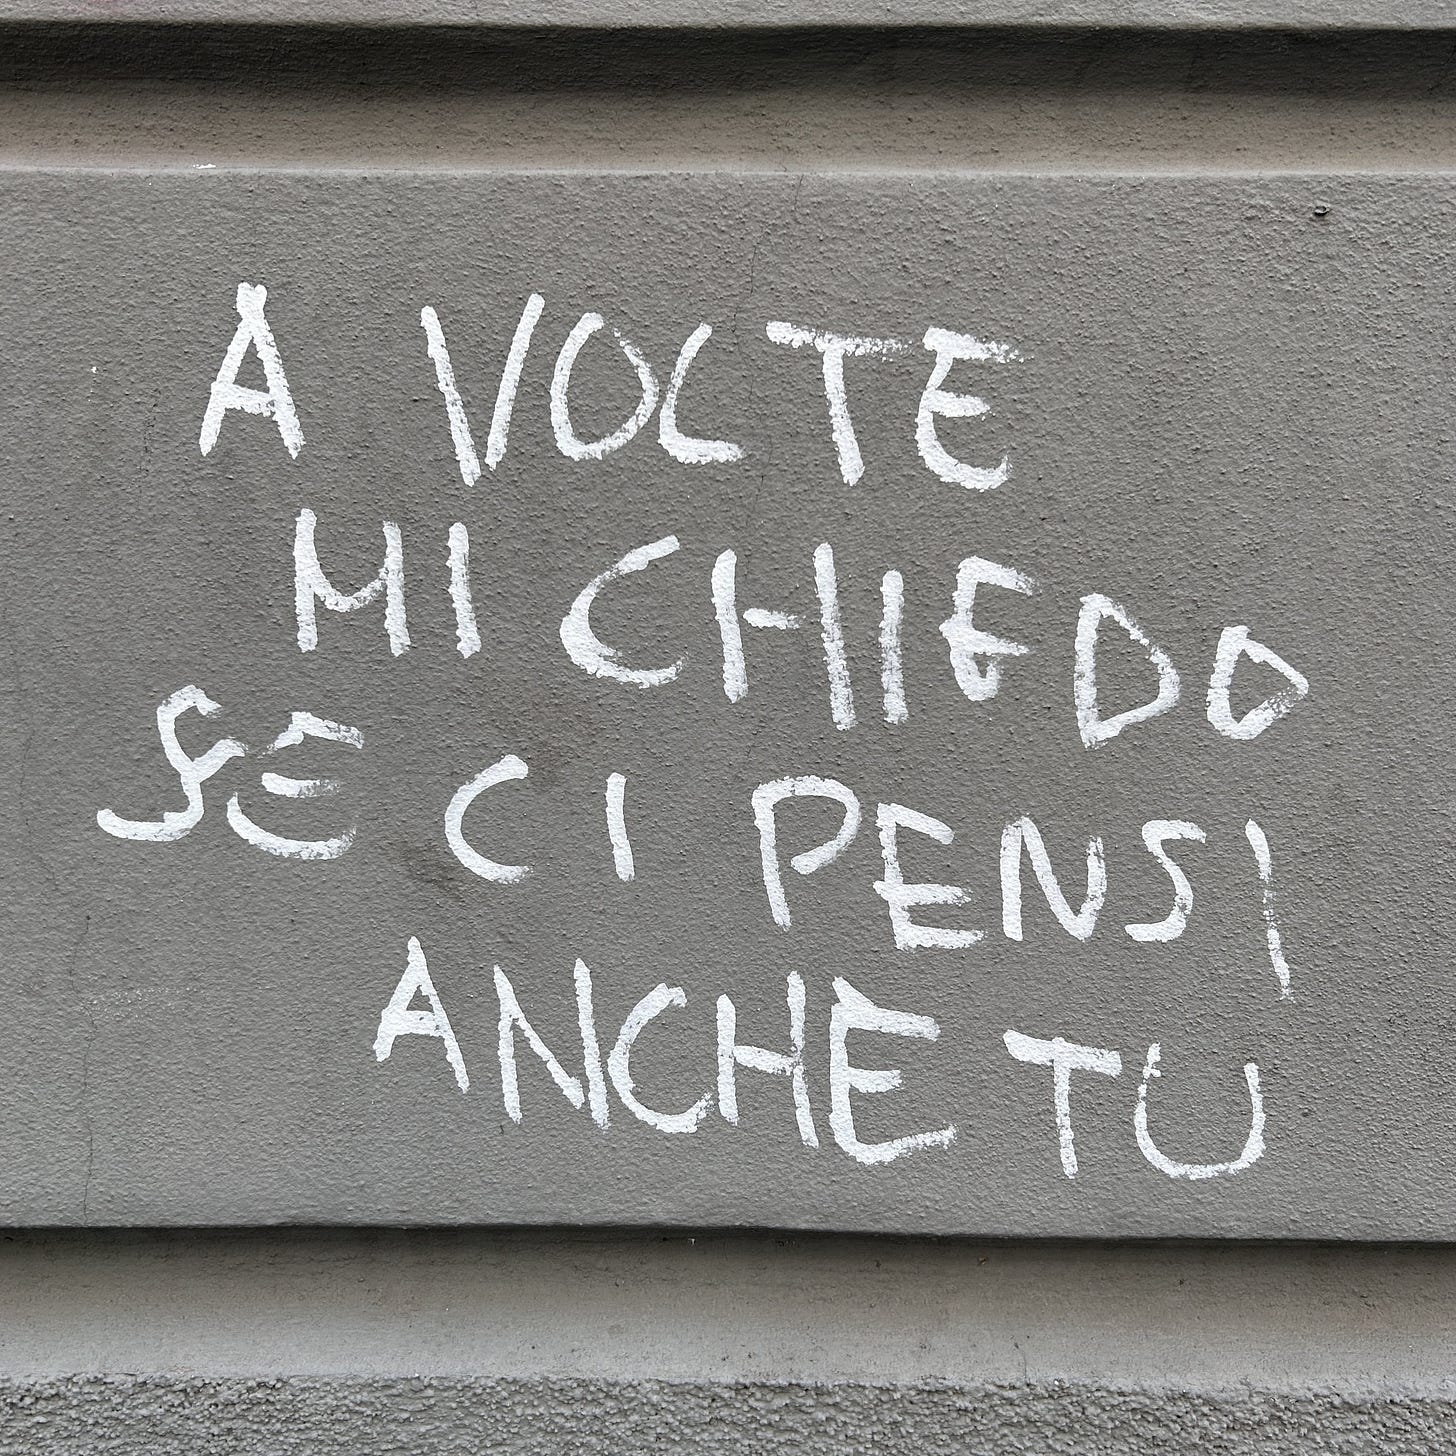 A VOLTE
MI CHIEDO
SE CI PENSI
ANCHE TU